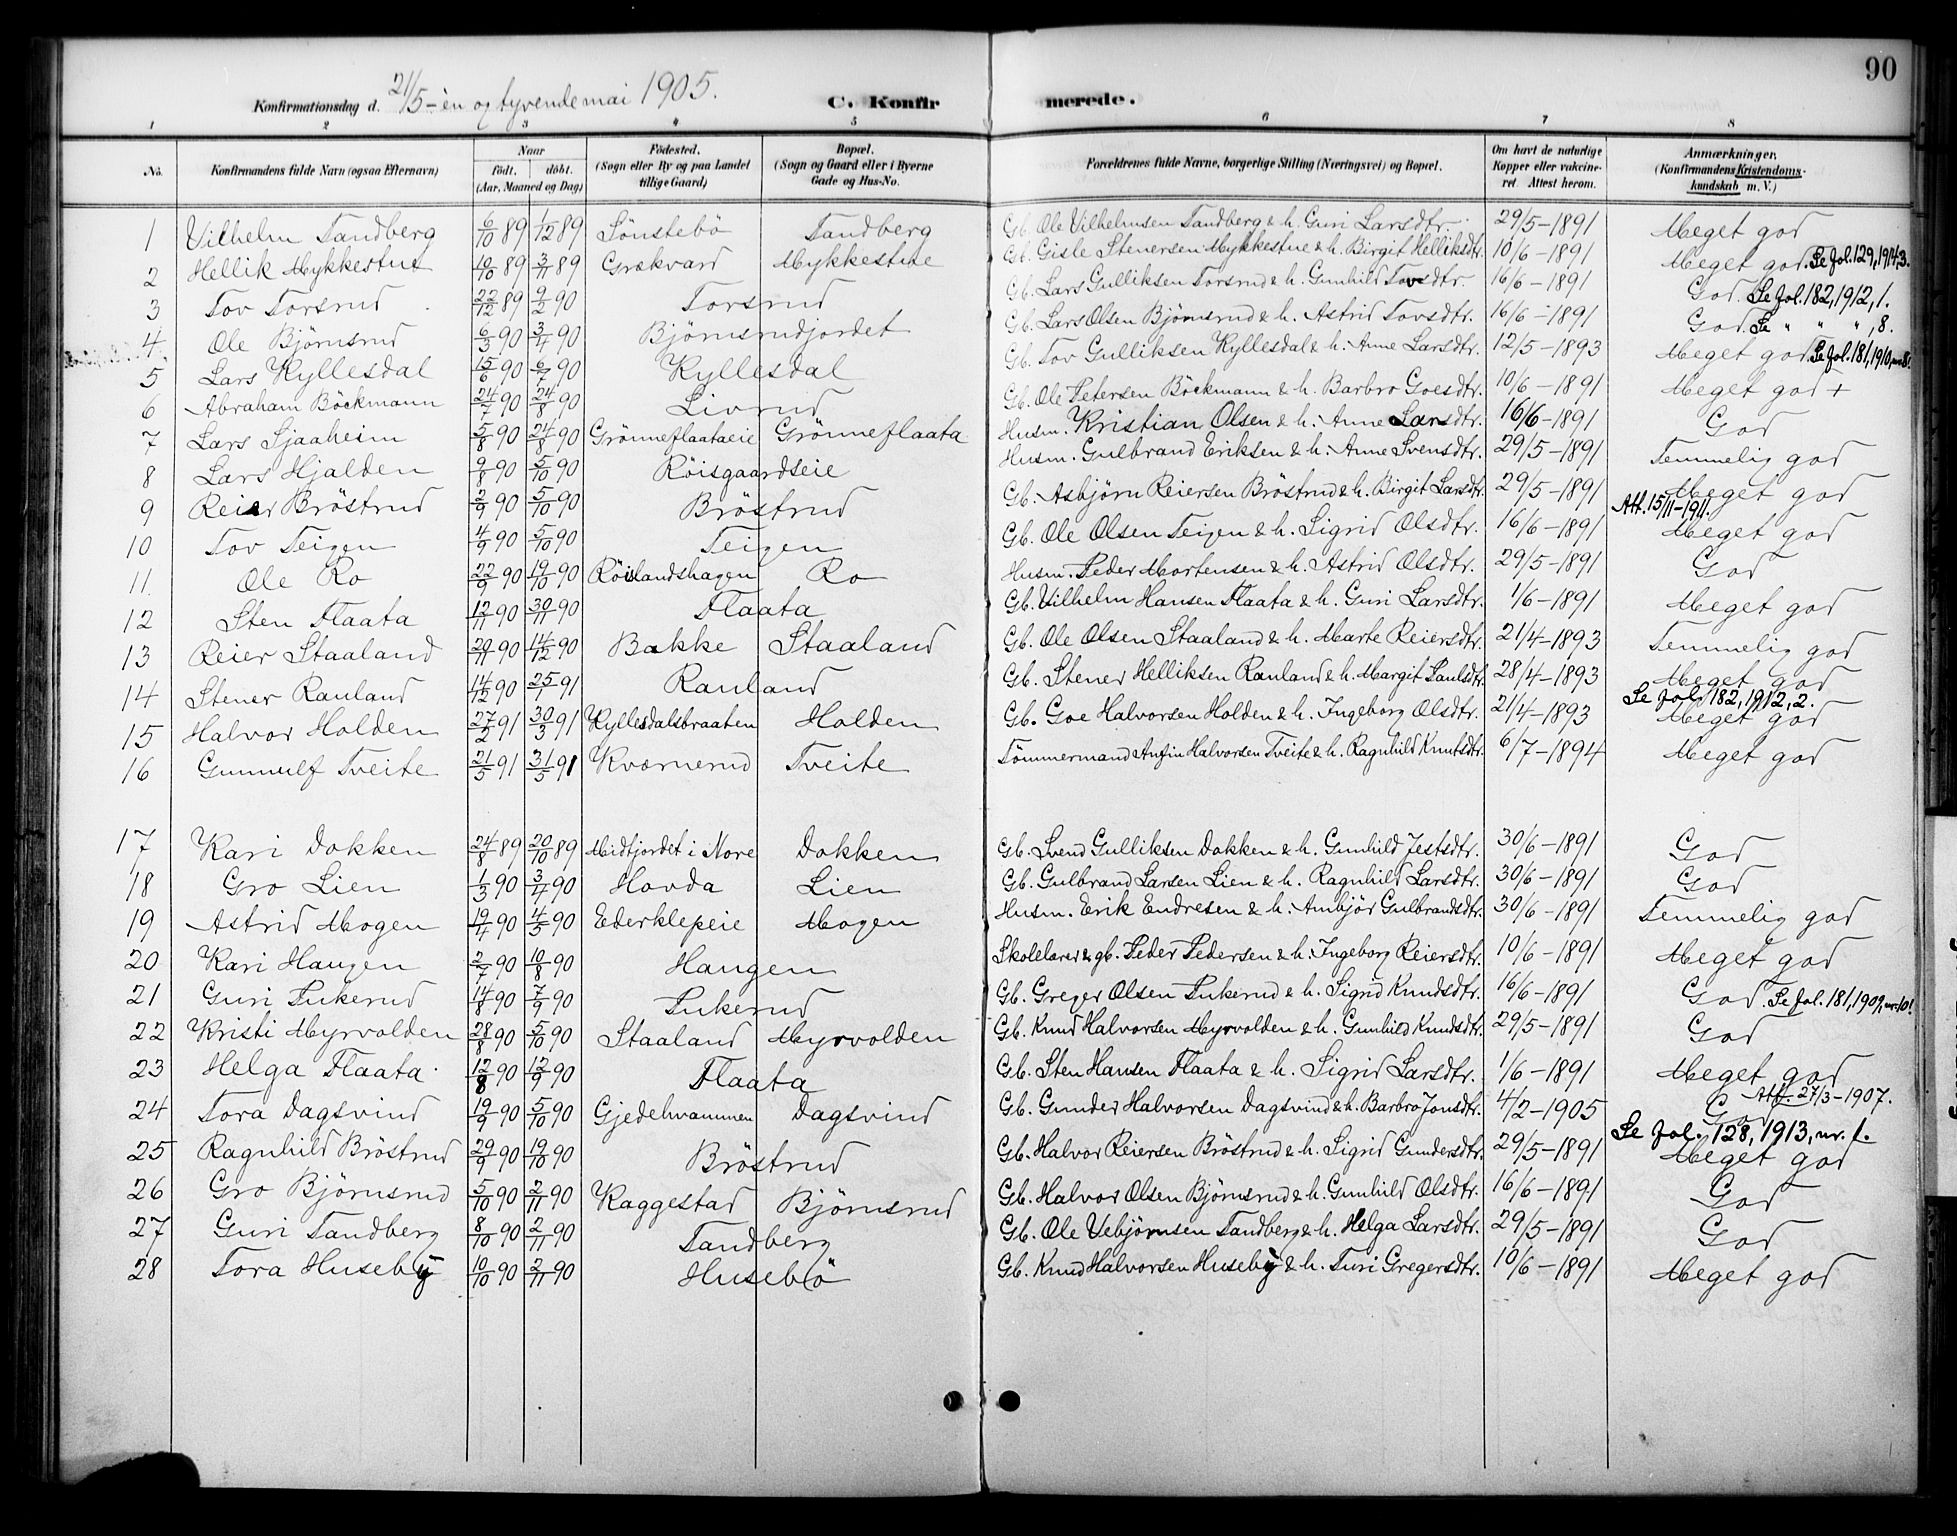 90
Konfirmationsdag d. 21/5 - én og tyvende mai 1905. C. Konfirmerede.
1 2 3 4 5 6 7 8
No. Konfirmandens fulde Navn (ogsaa Efternavn) Naar født. døbt. (Aar, Maaned og Dag) Fødested. (Sogn eller By og paa Landet tillige Gaard) Bopæl. (Sogn og Gaard eller i Byerne Gade og Hus-No. Forældrenes fulde Navne, borgerlige Stilling (Næringsvei) og Bopæl. Om havt de naturlige Kopper eller vakcineret Attest herom. Anmærkninger. (Konfirmandens Kristendomskundskab m. V.)
1 Vilhelm Tandberg 6/10 89 1/12 89 Sönstebö Tandberg Gb. Ole Vilhelmsen Tandberg & h. Guri Larsdtr. 29/5-1891 Meget god
2 Hellik Mykkestue 10/10 89 3/11 89 Grækvard Mykkestue Gb. Gisle Stenersen Mykkestue & h. Birgit Helliksdtr. 10/6-1891 Meget god. Se Jol. 129, 1914, 3.
3 Tov Torsrud 22/12 89 9/2 90 Torsrud Gb. Lars Gulliksen Torsrud & h. Gunhild Tovsdtr. 16/6-1891 God. Se Jol. 182, 1912, 1.
4 Ole Björnsrud 6/3 90 3/4 90 Björnsrudjordet Gb. Lars Olsen Björnsrud & h. Astrid Tovsdtr. 16/6-1891 God. Se " " ", 8.
5 Lars Kyllesdal 15/6 90 6/7 90 Kyllesdal Gb. Tov Gulliksen Kyllesdal & h. Anne Larsdtr. 12/5-1893 Meget god Se Jol. 181, 1910, nr. 8.
6 Abraham Böckmann 24/7 90 24/8 90 Livrud Gb. Ole Petersen Böckmann & h. Barbro Goesdtr. 10/6-1891 Meget god +
7 Lars Sjaaheim 5/8 90 24/8 90 Grönneflaataeie Grönneflaata Husm. Kristian Olsen & h. Anne Larsdtr. 16/6-1891 God
8 Lars Hjalden 9/8 90 5/10 90 Röisgaardseie Husm. Gulbrand Eriksen & h. Anne Svensdtr. 29/5-1891 Temmelig god
9 Reier Bröstrud 2/9 90 5/10 90 Bröstrud Gb. Asbjörn Reiersen Bröstrud & h. Birgit Larsdtr. 29/5-1891 Meget god
Att. 15/11-1911.
10 Tov Teigen 4/9 90 5/10 90 Teigen Gb. Ole Olsen Teigen & h. Sigrid Olsdtr. 16/6-1891 Meget god
11 Ole Ro 22/9 90 19/10 90 Röislandshagen Ro Husm. Peder Mortensen & h. Astrid Olsdtr. 29/5-1891 God
12 Sten Flaata 12/11 90 30/11 90 Flaata Gb. Vilhelm Hansen Flaata & h. Guri Larsdtr. 1/6-1891 Meget god
13 Reier Staaland 20/11 90 14/12 90 Bakke Staaland Gb. Ole Olsen Staaland & h. Marte Reiersdtr. 21/4-1893 Temmelig god
14 Stener Rauland 14/12 90 25/1 91 Rauland Gb. Stener Helliksen Rauland & h. Margit Paulsdtr. 28/4-1893 Meget god
Se Jol. 182, 1912, 2.
15 Halvor Holden 27/2 91 30/3 91 Kyllesdalsbraaten Holden Gb. Goe Halvorsen Holden & h. Ingeborg Olsdtr. 21/4-1893 Meget god
16 Gunnulf Tveite 21/5 91 31/5 91 Kværnerud Tveite Tömmermand Anfin Halvorsen Tveite & h. Ragnhild Knutsdtr. 6/7-1894 Meget god
17 Kari Dokken 24/8 89 20/10 89 Midtfjordet i Nore Dokken Gb. Svend Gulliksen Dokken & h. Gunhild Jestsdtr. 30/6-1891 God
18 Gro Lien 1/3 90 3/4 90 Hovda Lien Gb. Gulbrand Larsen Lien & h. Ragnhild Larsdtr. 30/6-1891 God
19 Astrid Mogen 19/4 90 4/5 90 Ederklepeie Mogen Husm. Erik Endresen & h. Ambjör Gulbrandsdtr. 30/6-1891 Temmelig god
20 Kari Haugen 2/7 90 10/8 90 Haugen Skolelærer & gb. Peder Pedersen & h. Ingeborg Reiersdtr. 10/6-1891 Meget god
21 Guri Pukerud 14/8 90 7/9 90 Pukerud Gb. Greger Olsen Pukerud & h. Sigrid Knudsdtr. 16/6-1891 God Se Jol. 181, 1909, nr. 10!
22 Kristi Myrvolden 28/8 90 5/10 90 Staaland Myrvolden Gb. Knud Halvorsen Myrvolden & h. Gunhild Knudsdtr. 29/5-1891 God
23 Helga Flaata 12/8 90 12/9 90 Flaata Gb. Sten Hansen Flaata & h. Sigrid Larsdtr. 1/6-1891 Meget god
Att. 27/3-1907.
24 Tora Dagsvind 19/9 90 5/10 90 Gjedehvammen Dagsvind Gb. Gunder Halvorsen Dagsvind & h. Barbro Jonsdtr. 4/2-1905 God
Se Jol. 128, 1913, nr. 1.
25 Ragnhild Bröstrud 29/9 90 19/10 90 Bröstrud Gb. Halvor Reiersen Bröstrud & h. Sigrid Gundersdtr. 29/5-1891 Meget god
26 Gro Björnsrud 5/10 90 2/11 90 Kaggestad Björnsrud Gb. Halvor Olsen Björnsrud & h. Gunhild Olsdtr. 16/6-1891 God
27 Guri Tandberg 8/10 90 2/11 90 Tandberg Gb. Ole Vebjörnsen Tandberg & h. Helga Larsdtr. 29/5-1891 God
28 Tora Huseby 10/10 90 2/11 90 Husebö Gb. Knud Halvorsen Huseby & h. Turi Gregersdtr. 10/6-1891 Meget god